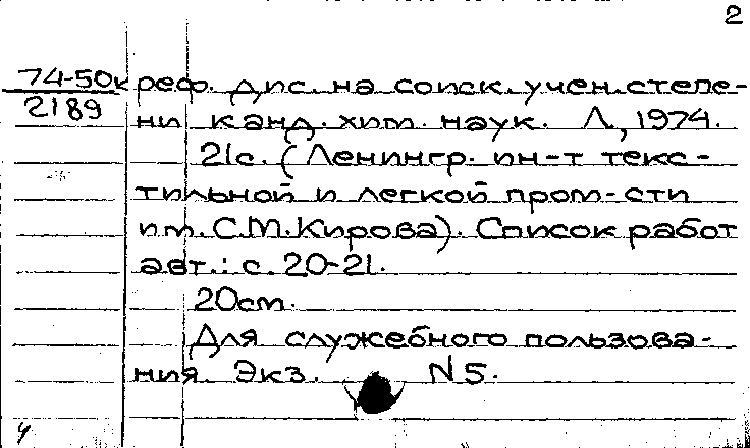 2
74-50к реф. дис. на соиск. учен. степе-
2189
ни канд. хим. наук. Л., 1974.
21с. (Ленингр. ин-т текс-
тильной и легкой пром-сти
им. С.М.Кирова). Список работ
авт.: с. 20-21.
20см.
Для служебного пользова-
ния. Экз. N5.